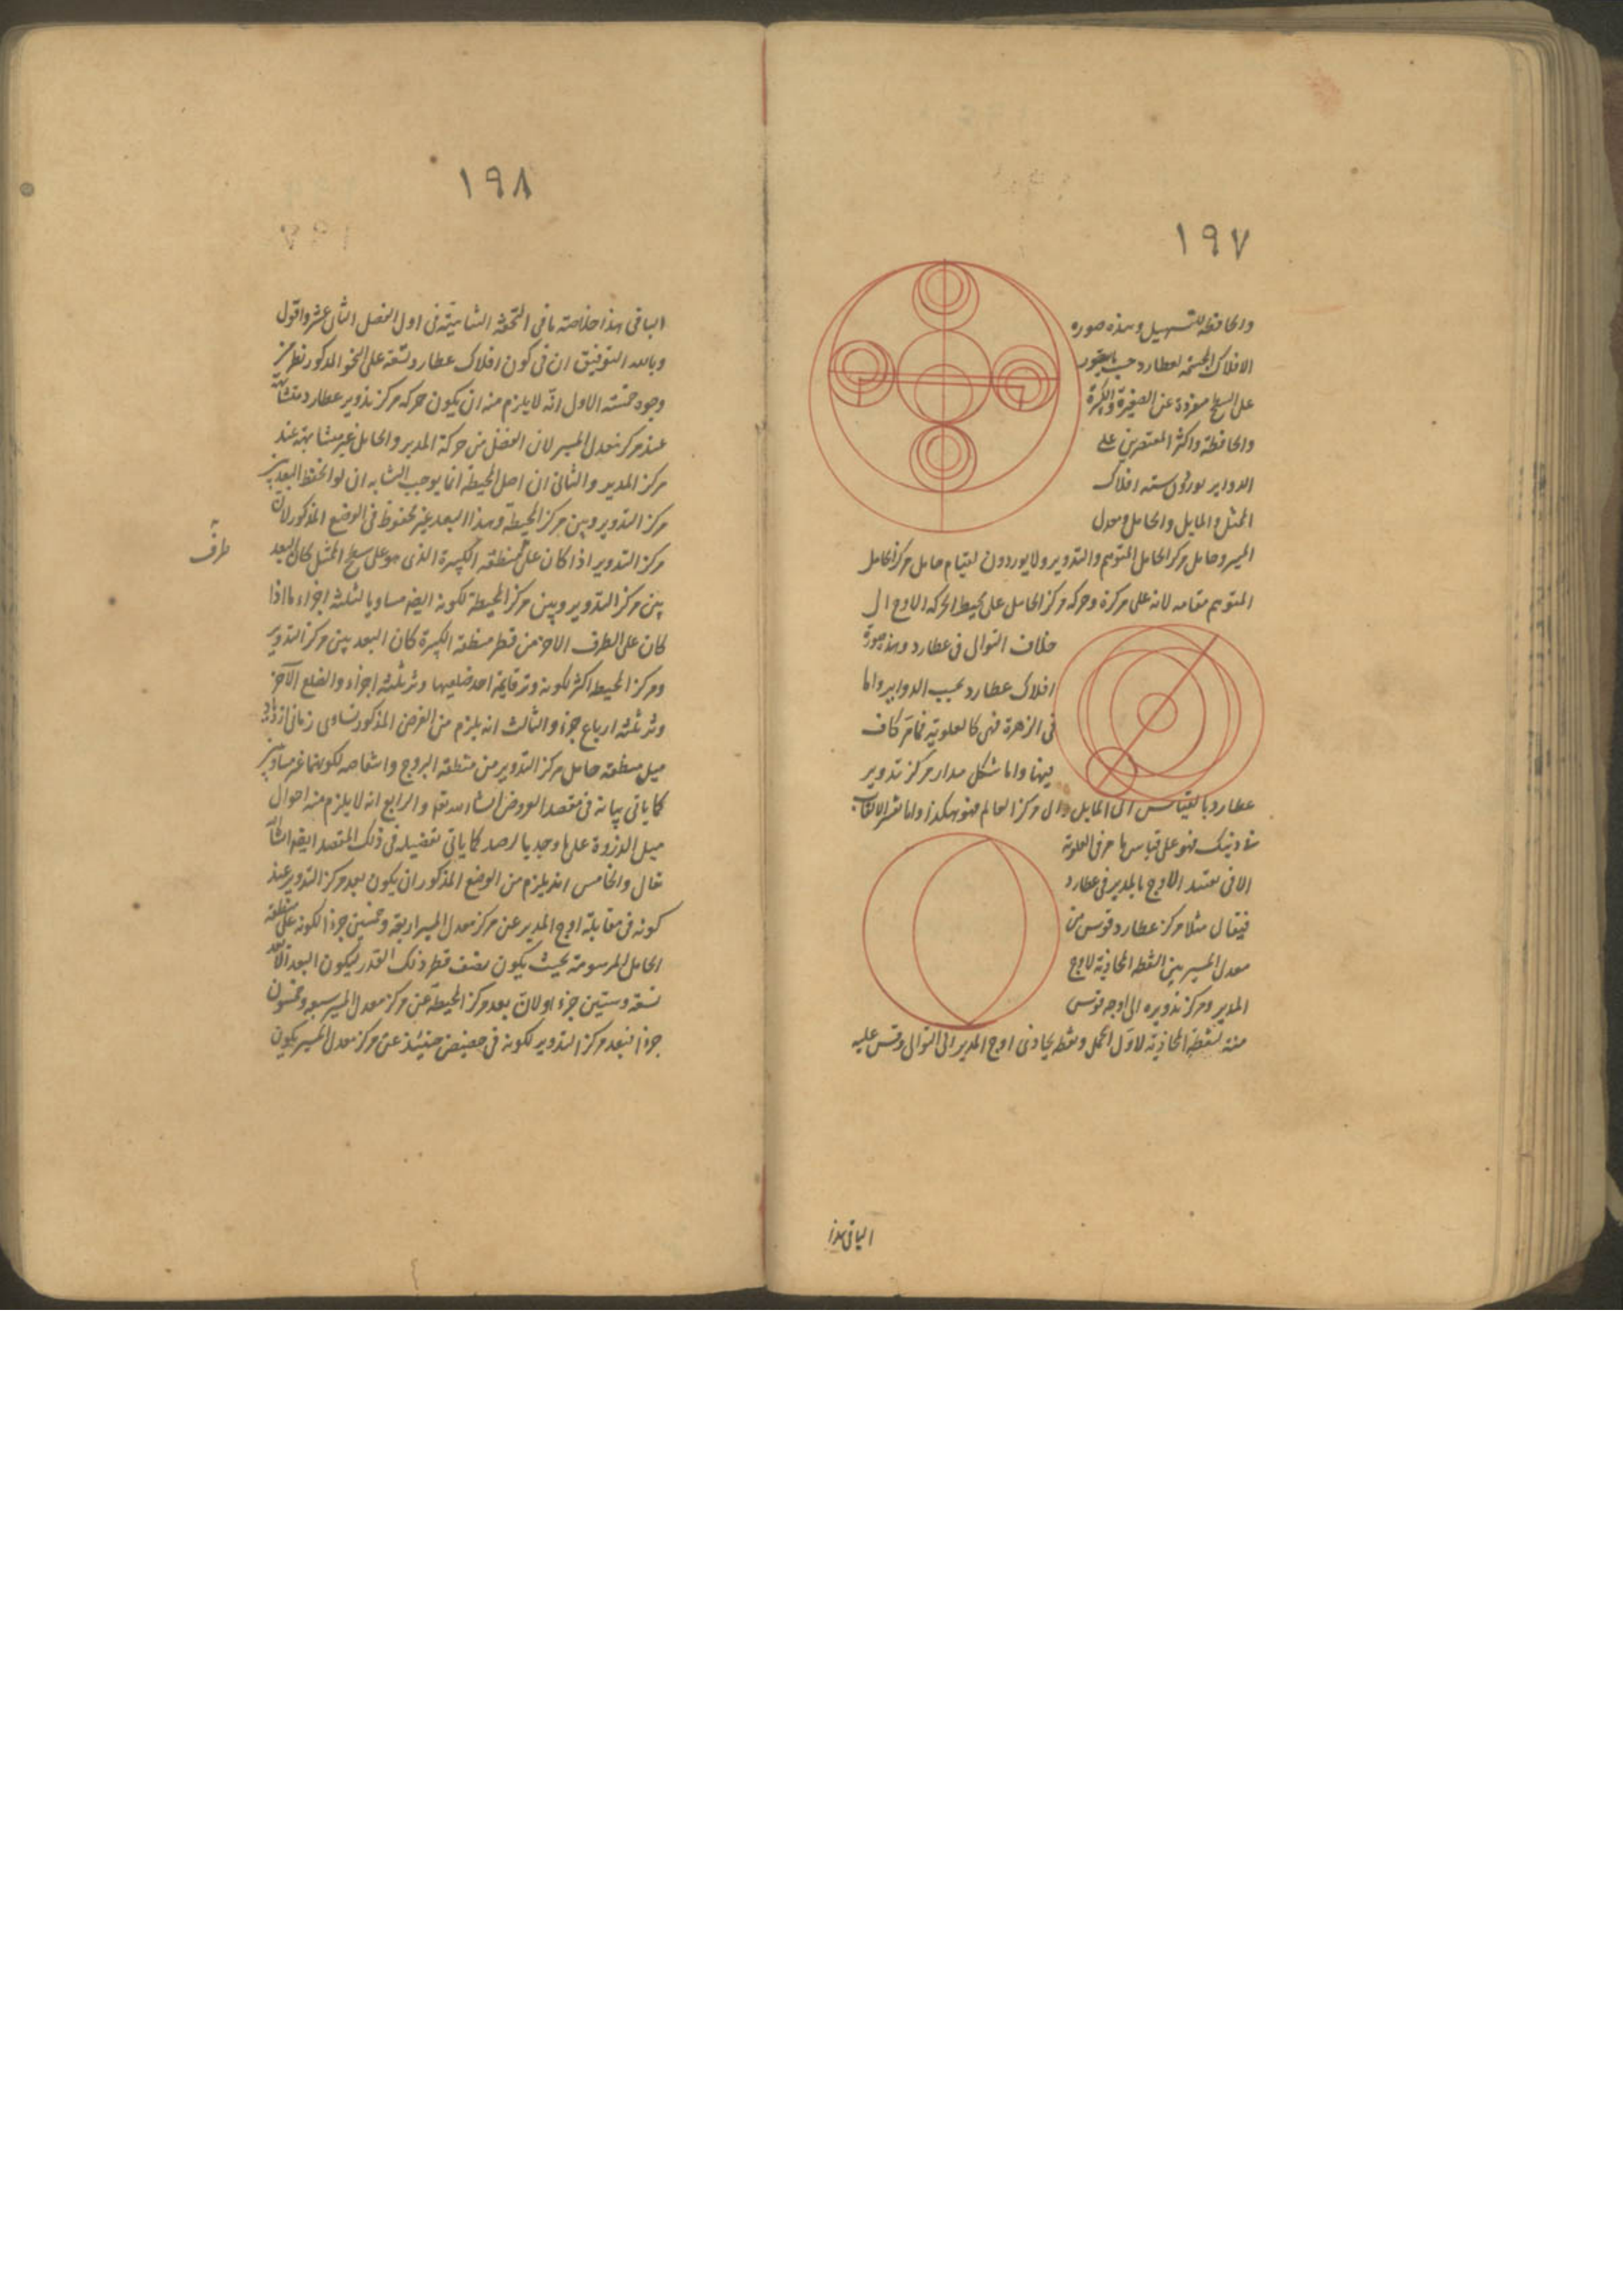 ١٩٧
والحافظة للتسهيل وهذه صورة
الافلاك المجسمة لعطارد حسب ما يتصور
على السطح مفردة عن الصغيرة والكبيرة
والحافظة واكثر المقتصرين على
الدواير يوردون ستة افلاك
الممثل والمايل والحامل ومعدل
المسير وحامل مركز الحامل المتوهم والتدوير ولا يوردون لقيام حامل مركز الحامل
المتوهم مقامه لانه على مركزه وحركة مركز الحامل على محيط الحركة الاوج الى
خلاف التوالى فى عطارد وهذه صورة
افلاك عطارد بحسب الدواير واما
فى الزهرة فهى كالعلوية فما مر كاف
فيها واما شكل مدار مركز تدوير
عطارد بالقياس الى المايل والى مركز العالم فهو هكذا واما تفسير الالقاب
فهو على قياس ما مر فى العلوية
الا فى تقييد الاوج بالمدير فى عطارد
فيقال مثلا مركز عطارد قوس من
معدل المسير بين النقطة المحاذية لاوج
المدير ومركز تدويره الى اوجه قوس
منه لنقطة المحاذية لاول الحمل ونقطة يحاذى اوج المدير الى التوالى وقس عليه
الباقى هذا
١٩٨
الباقى هذا خلاصة ما فى التحفة الشاهية فى اول الفصل الثانى عشر واقول
وبالله التوفيق ان فى كون افلاك عطارد تسعة على النحو المذكور نظر من
وجوه خمسة الاول انه لا يلزم منه ان يكون حركة مركز تدوير عطارد متشابهة
عند مركز معدل المسير لان الفضل من حركة المدير والحامل غير متشابهة عند
مركز المدير والثانى ان اصل المحيطة انما يوجب التشابه ان لو انحفظ البعد بين
مركز التدوير وبين مركز المحيطة وهذا البعد غير محفوظ فى الوضع المذكور لان
مركز التدوير اذا كان على منطقة الكبيرة الذى هو على سطح الممثل كان البعد
طرف
بين مركز التدوير وبين مركز المحيطة لكونه ايضا مساويا لثلثة اجزاء ما اذا
كان على الطرف الاخر من قطر منطقة الكبيرة كان البعد بين مركز التدوير
ومركز المحيطة اكثر لكونه وتر قايمة احد ضلعيها وتر ثلثة اجزاء والضلع الآخر
وتر ثلثة ارباع جزء والثالث انه يلزم من الفرض المذكور تساوى زمانى ازدياد
ميل منطقة حامل مركز التدوير من منطقة البروج وانتقاصه لكونهما غير متساويين
كما ياتى بيانه فى مقصد العروض انشاء الله تعالى والرابع انه لا يلزم منه احوال
ميل الذروة على ما وجد بالرصد كما ياتى تفصيله فى ذلك المقصد ايضا انشاء الله
تعالى والخامس انه يلزم من الوضع المذكور ان يكون بعد مركز التدوير عند
كونه فى مقابلة اوج المدير عن مركز معدل المسير اربعة وخمسين جزءا لكونه على منطقة
الحامل المرسومة بحيث يكون نصف قطر ذلك القدر ليكون البعد الابعد
تسعة وستين جزءا ولان بعد مركز المحيطة عن مركز معدل المسير سبعة وخمسون
جزءا فبعد مركز التدوير لكونه فى حضيض حينئذ عن مركز معدل المسير يكون